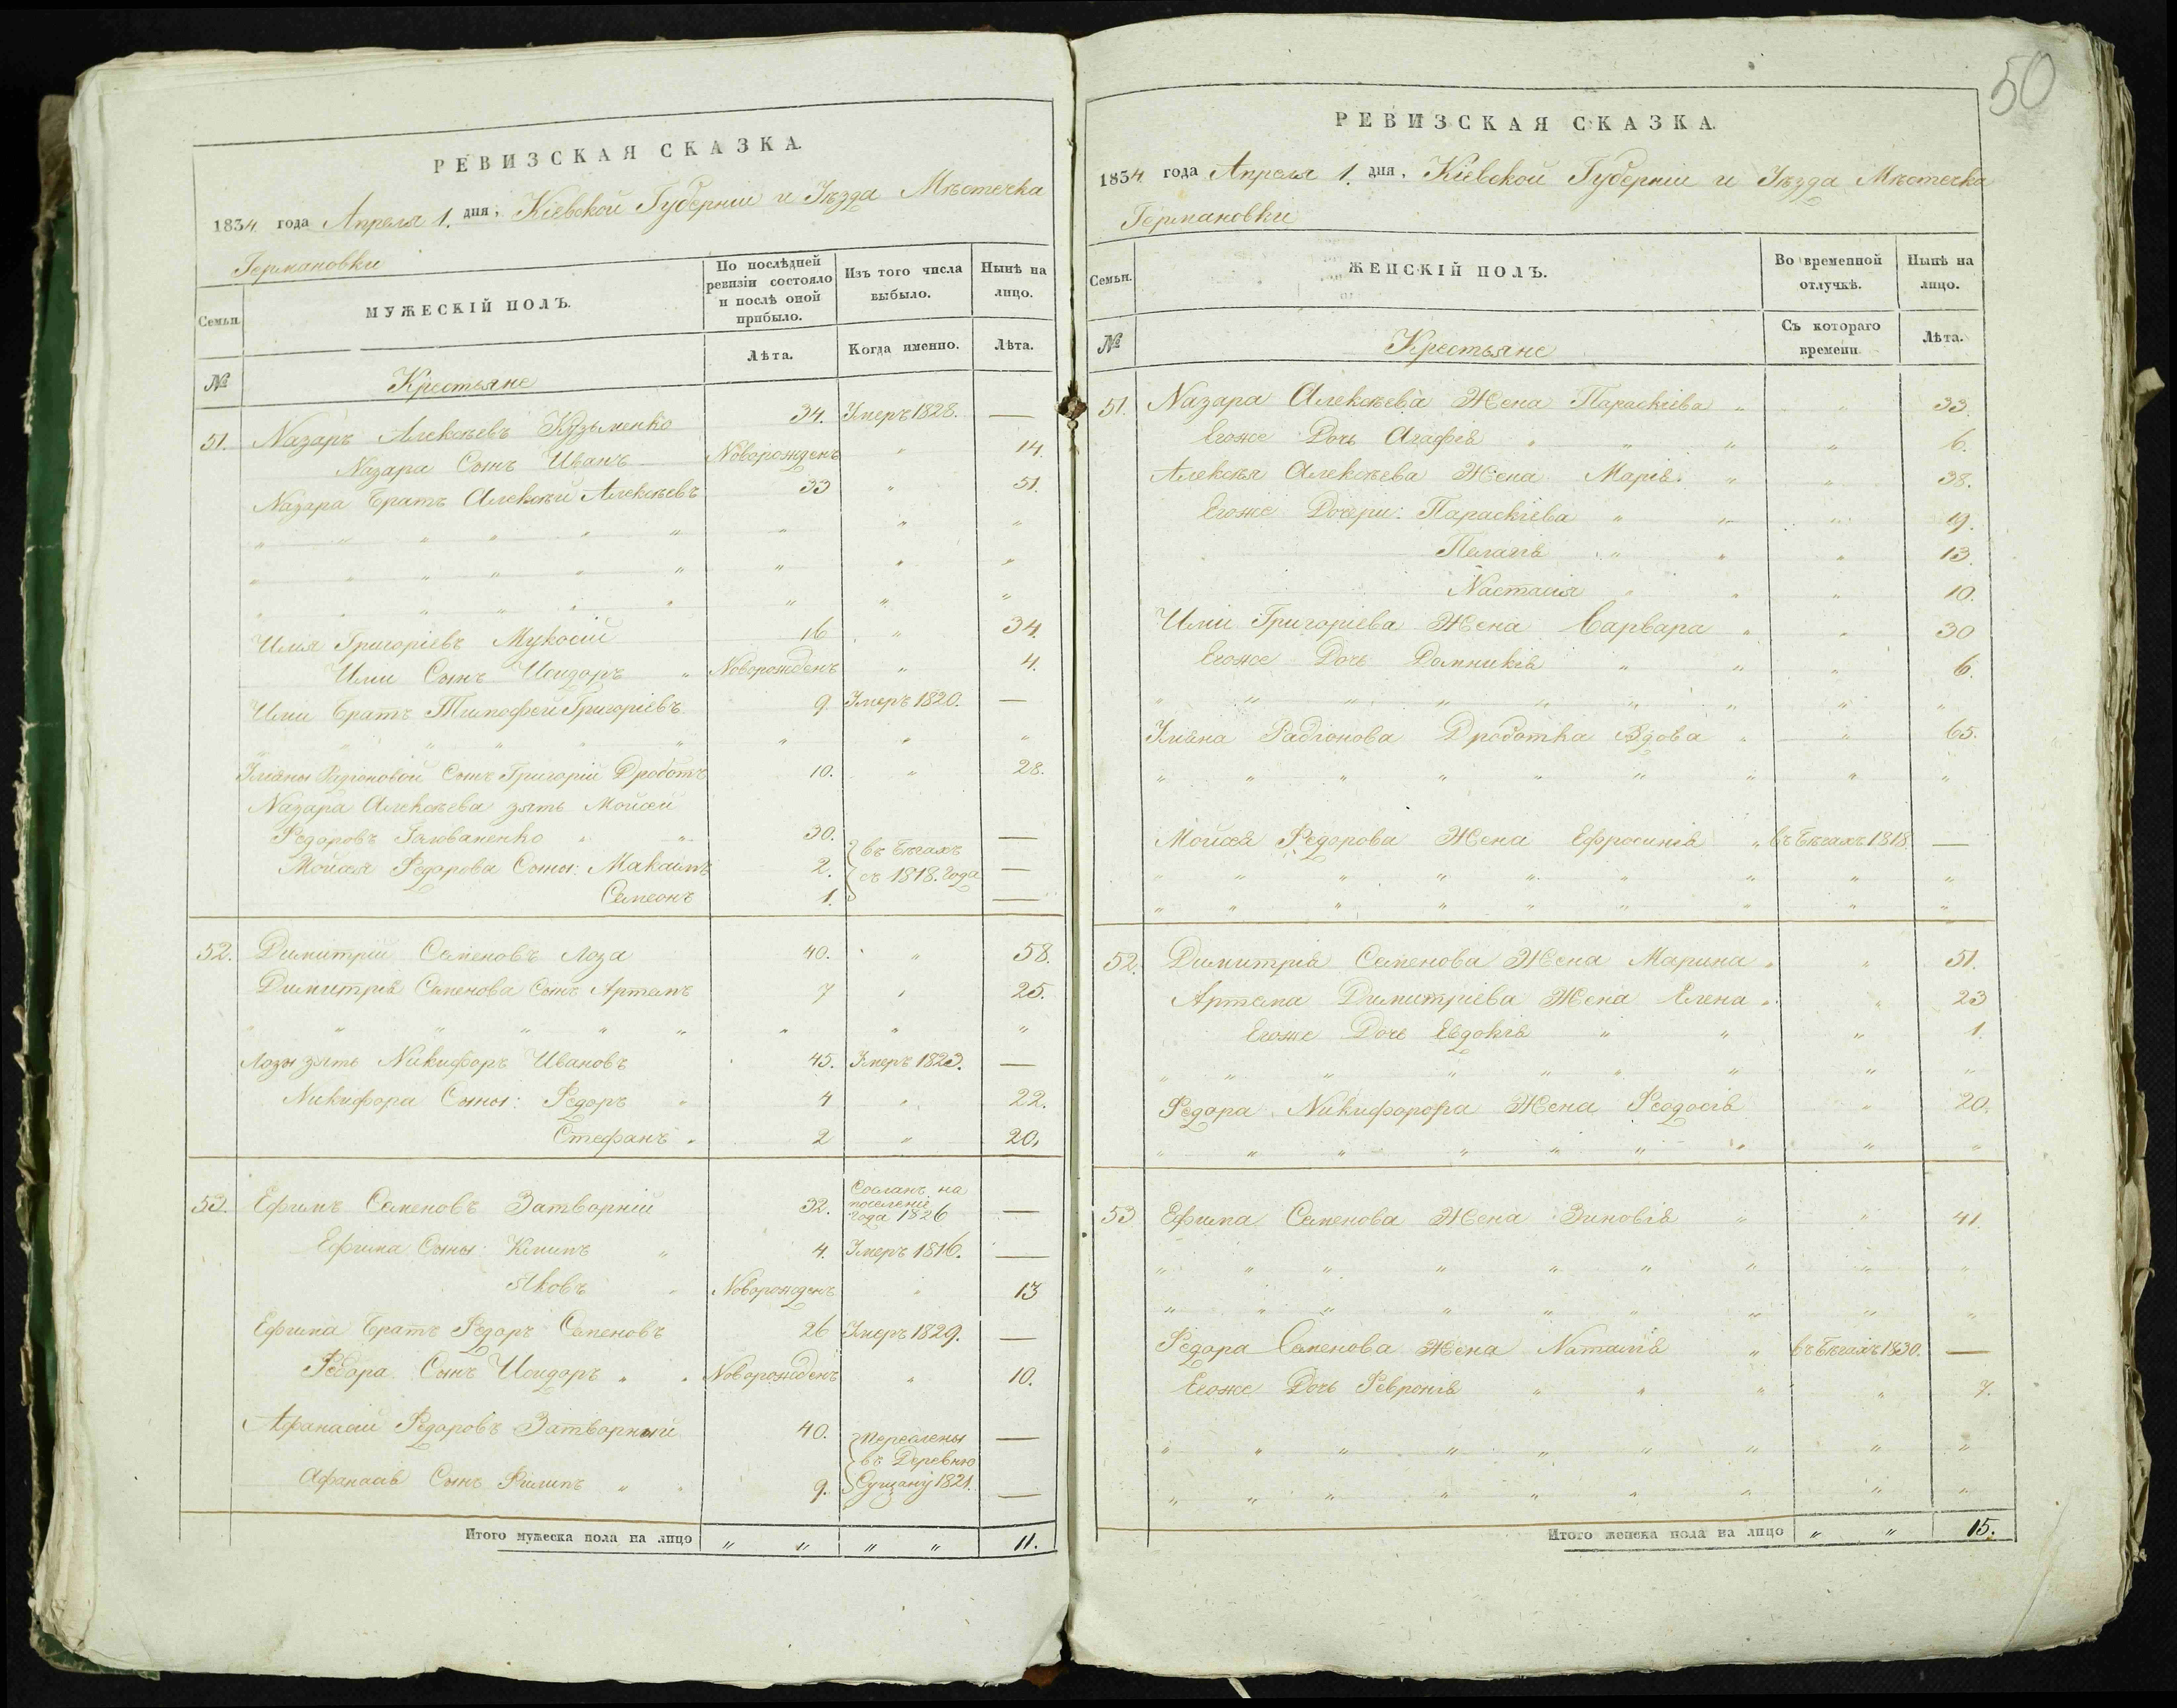 50
РЕВИЗСКАЯ СКАЗКА.
1834 года Апреля 1. дня, Кіевской Губерніи и Уѣзда Мѣстечка
Германовки
Семьи
МУЖЕСКІЙ ПОЛЪ.
По послѣдней ревизіи состояло и послѣ оной прибыло.
Изъ того числа выбыло.
Нынѣ на лицо.
№
Крестьяне
Лѣта.
Когда именно.
Лѣта.
51. Назаръ Алексѣевъ Кузьменко 34. Умеръ 1828. —
Назара Сынъ Иванъ Новорожденъ " 14.
Назара Братъ Алексѣй Алексѣевъ 33 " 51.
" " " " " " " " "
" " " " " " " " "
" " " " " " " " "
Илья Григоріевъ Мукосій 16 " 34.
Ильи Сынъ Исидоръ " Новорожденъ " 4.
Ильи Братъ Тимофей Григоріевъ 9. Умеръ 1820. —
" " " " " " " "
Уліяны Радіоновой Сынъ Григорій Дроботъ 10. " 28.
Назара Алексѣева зять Мойсей
Федоровъ Галованенко " " 30. —
Мойсея Федорова Сыны: Максимъ 2. —
Семеонъ 1. —
въ бѣгахъ
съ 1818. года
52. Димитрій Семеновъ Лоза 40. " 58.
Димитрія Семенова Сынъ Артемъ 7 " 25.
" " " " " " " " "
Лозы зять Никифоръ Ивановъ 45. Умеръ 1823. —
Никифора Сыны: Федоръ " 4 " 22.
Стефанъ " 2 " 20.
53. Ефимъ Семеновъ Затворній 32. Сосланъ на поселеніе года 1826 —
Ефима Сыны: Климъ " 4. Умеръ 1816. —
Яковъ " Новорожденъ " 13
Ефима Братъ Федоръ Семеновъ 26 Умеръ 1829. —
Федора Сынъ Исидоръ " " Новорожденъ " 10.
Афанасій Федоровъ Затворный 40. —
Афанасія Сынъ Филипъ " " 9. —
Переселены
въ Деревню
Сущану 1821.
Итого мужеска пола на лицо " " " " 11.
РЕВИЗСКАЯ СКАЗКА.
1834 года Апреля 1. дня, Кіевской Губерніи и Уѣзда Мѣстечка
Германовки
Семьи.
ЖЕНСКІЙ ПОЛЪ.
Во временной отлучкѣ.
Нынѣ на лицо.
№
Крестьяне
Съ котораго времени
Лѣта.
51. Назара Алексѣева Жена Параскіева " " 33.
Егоже Дочь Агафія " " " " 6.
Алексѣя Алексѣева Жена Марія " " 38.
Егоже Дочери: Параскіева " " " 19.
Пелагія " " " 13.
Настасія " " " 10.
Ильи Григоріева Жена Варвара " " 30
Егоже Дочь Домникія " " " 6.
" " " " " " " " "
Уліяна Радіонова Дроботка Вдова " " 65.
" " " " " " " " "
Мойсея Федорова Жена Ефросинія " въ бѣгахъ 1818. —
" " " " " " " " "
" " " " " " " " "
52. Димитрія Семенова Жена Марина " " 51.
Артема Димитріева Жена Елена " " 23
Егоже Дочь Евдокія " " " 1.
" " " " " " " " "
Федора Никифорора Жена Феодосія " 20.
" " " " " " " " "
53 Ефима Семенова Жена Зиновія " " 41.
" " " " " " " " "
" " " " " " " " "
Федора Семенова Жена Наталія " въ бѣгахъ 1830. —
Егоже Дочь Февронія " " " " 7.
" " " " " " " " "
" " " " " " " " "
Итого женска пола на лицо " " 15.